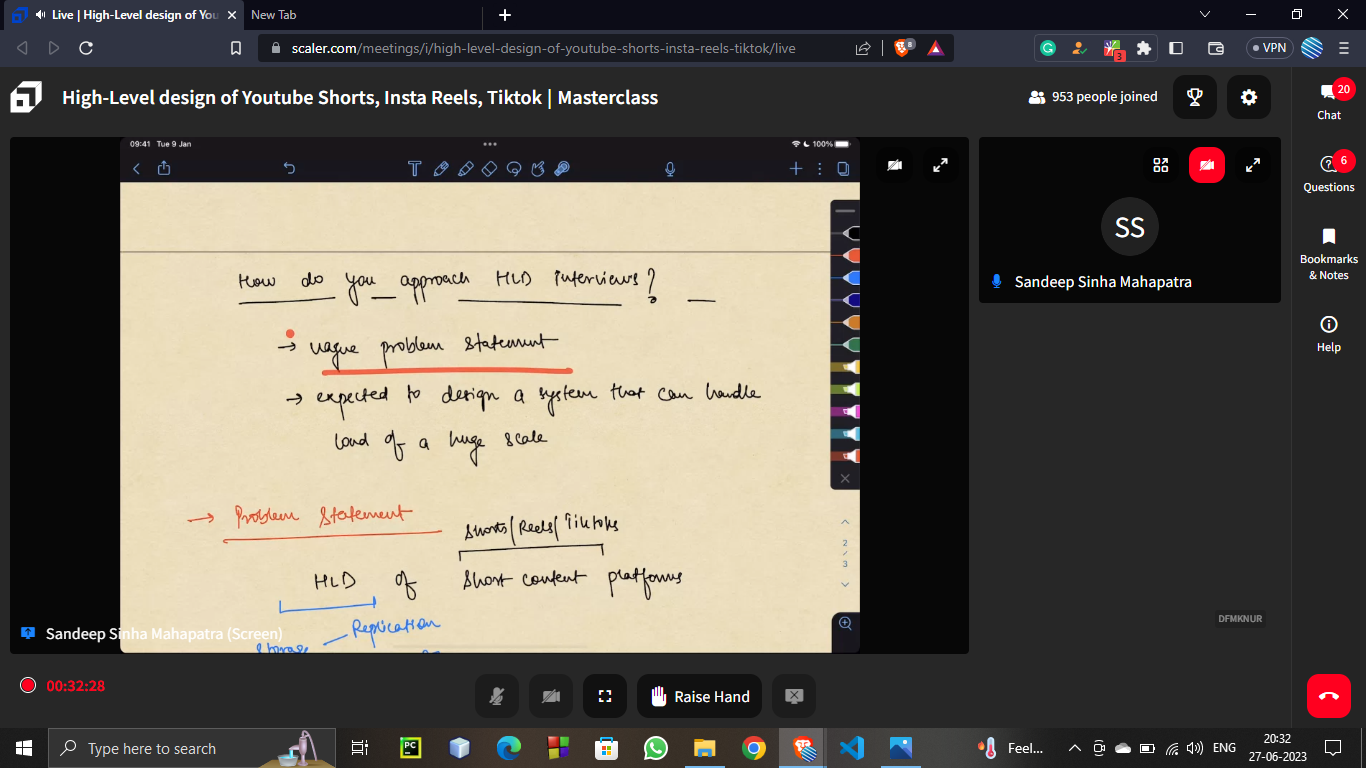 Live | High-Level design of You
New Tab
scaler.com/meetings/i/high-level-design-of-youtube-shorts-insta-reels-tiktok/live
8
3
VPN
High-Level design of Youtube Shorts, Insta Reels, Tiktok | Masterclass
953 people joined
20
Chat
6
Questions
Bookmarks
& Notes
Help
09:41 Tue 9 Jan
100%
How do you approach HLD interviews?
→ vague problem statement
→ expected to design a system that can handle
load of a huge scale
→ Problem Statement
Shorts/Reels/Tiktoks
HLD of short content platforms
Replication
Storage
2
/
3
SS
Sandeep Sinha Mahapatra
Sandeep Sinha Mahapatra (Screen)
DFMKNUR
00:32:28
Raise Hand
Type here to search
PC
Feel...
ENG
20:32
27-06-2023